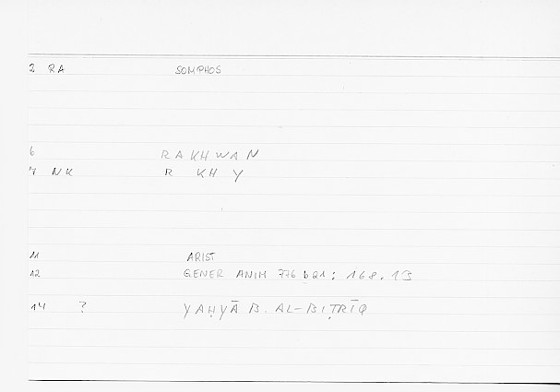 2 RA SOMPHOS
6 RAKHWAN
7 NK R KH Y
11 ARIST
12 GENER ANIM 776 b 21 : 168.19
14 ? YAḤYĀ B. AL-BIṬRĪQ